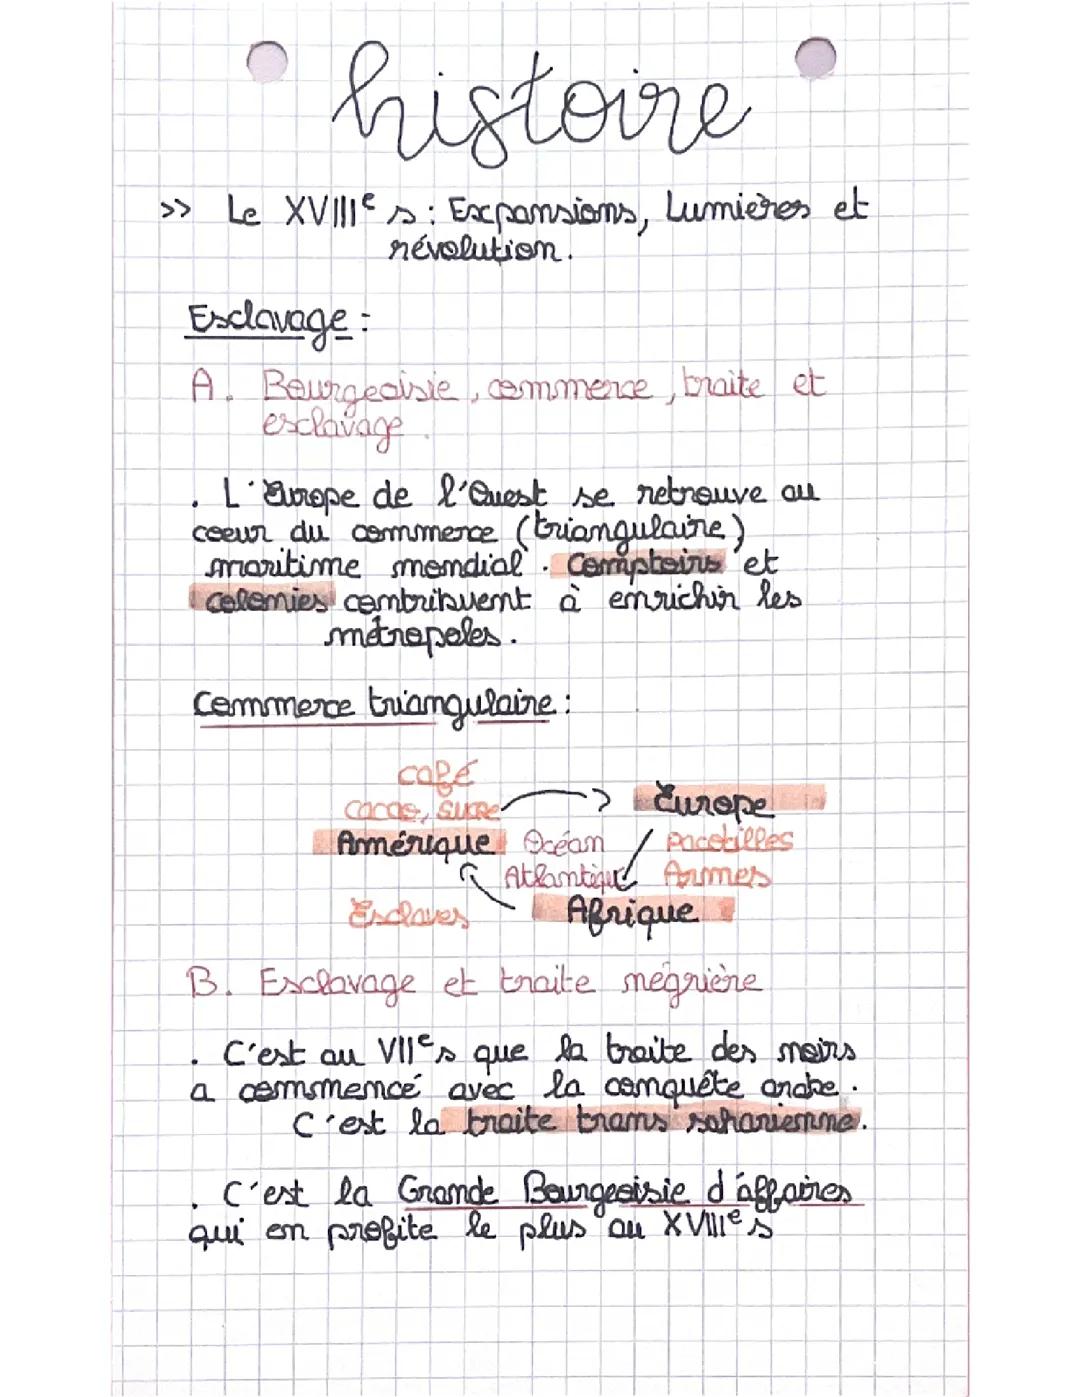 histoire
>> Le XVIIIe s : Expansions, Lumières et
révolution.
Esclavage :
A. Bourgeoisie, commerce, traite et
esclavage.
. L'Europe de l'Ouest se retrouve au
coeur du commerce (triangulaire)
maritime mondial. Comptoirs et
colonies contribuent à enrichir les
métropoles.
Commerce triangulaire :
café
cacao, sucre
Europe
Amérique
Océan
pacotilles
Atlantique
Armes
Esclaves
Afrique
B. Esclavage et traite négrière
. C'est au VIIe s que la traite des noirs
a commencé avec la conquête arabe.
C'est la traite trans saharienne.
. C'est la Grande Bourgeoisie d'affaires
qui en profite le plus au XVIIIe s